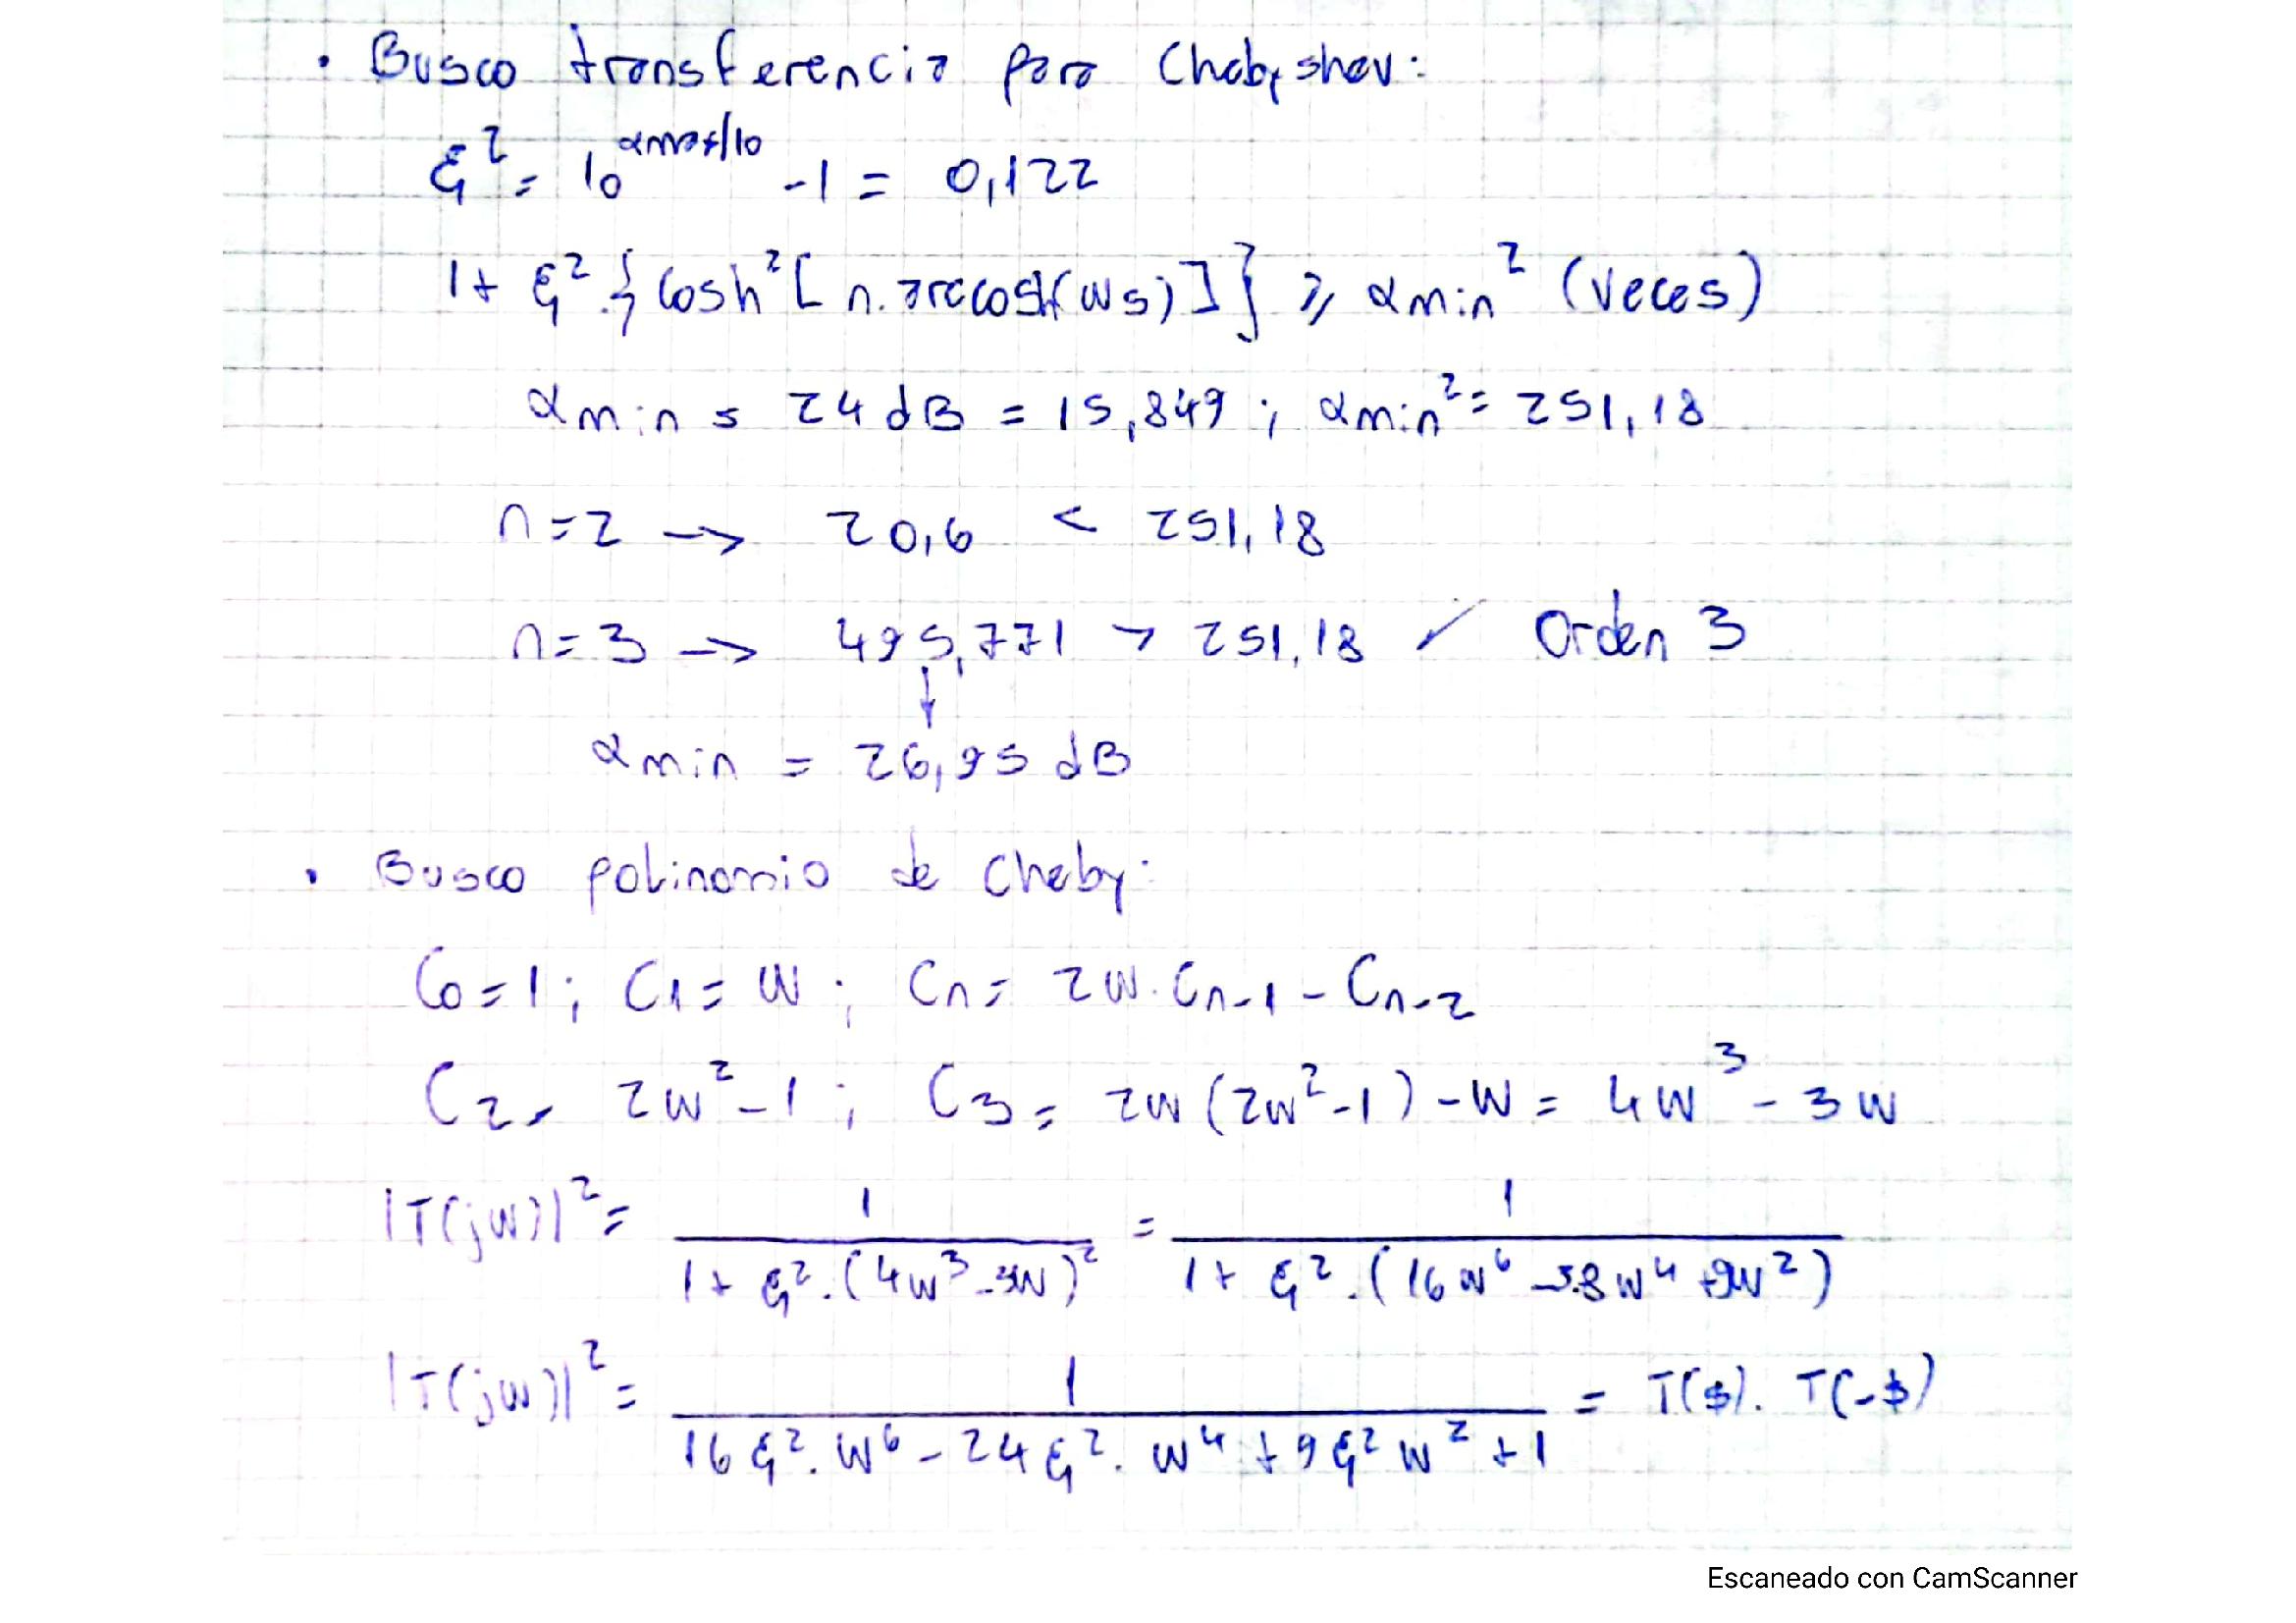 · Busco transferencia para Chebyshev:
ξ² = 10^(αmax/10) - 1 = 0,122
1 + ξ².{cosh²[n.arccosh(ws)]} ≥ αmin² (veces)
αmin = 24 dB = 15,849 ; αmin² = 251,18
n=2 → 20,6 < 251,18
n=3 → 495,771 > 251,18 ✓ Orden 3
↓
αmin = 26,95 dB
· Busco polinomio de Cheby:
C0 = 1 ; C1 = W ; Cn = 2W.Cn-1 - Cn-2
C2 = 2W² - 1 ; C3 = 2W(2W²-1) - W = 4W³ - 3W
|T(jW)|² = 1 / (1 + ξ².(4W³-3W)²) = 1 / (1 + ξ².(16W⁶ - 3.8W⁴ + 9W²))
|T(jW)|² = 1 / (16ξ².W⁶ - 24ξ².W⁴ + 9ξ²W² + 1) = T($).T(-$)
Escaneado con CamScanner